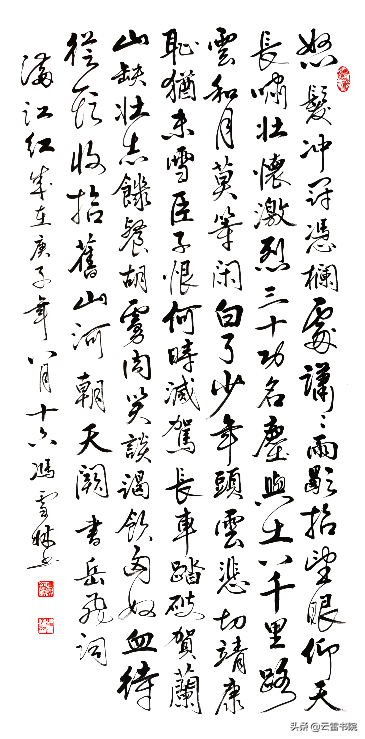 怒髮冲冠憑欄處瀟々雨歇抬望眼仰天
長嘯壯懷激烈三十功名塵與土八千里路
雲和月莫等闲白了少年頭空悲切靖康
恥猶未雪臣子恨何時滅駕長車踏破賀蘭
山缺壯志饑餐胡虜肉笑談渴飲匈奴血待
從頭收拾舊山河朝天闕書岳飛詞
滿江紅歲在庚子年八月十六馮雪林書
头条 @云雷书院